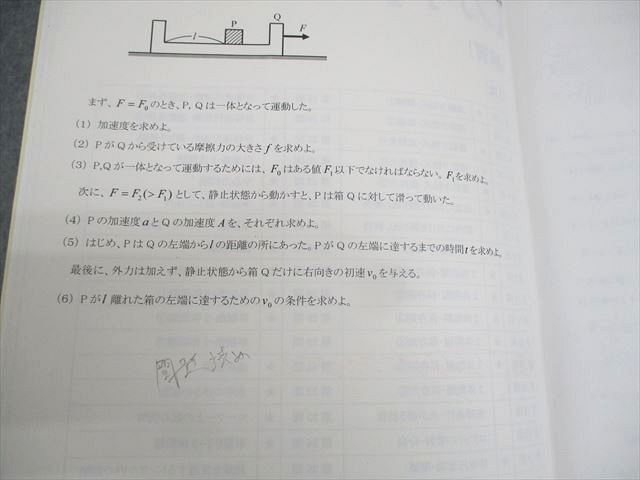 P Q F
l
まず、F = F₀ のとき、P, Q は一体となって運動した。
(1) 加速度を求めよ。
(2) P が Q から受けている摩擦力の大きさ f を求めよ。
(3) P,Q が一体となって運動するためには、F₀ はある値 F₁ 以下でなければならない。F₁を求めよ。
次に、F = F₂(> F₁) として、静止状態から動かすと、P は箱 Q に対して滑って動いた。
(4) P の加速度 a と Q の加速度 A を、それぞれ求めよ。
(5) はじめ、P は Q の左端から l の距離の所にあった。P が Q の左端に達するまでの時間 t を求めよ。
最後に、外力は加えず、静止状態から箱 Q だけに右向きの初速 v₀ を与える。
(6) P が l 離れた箱の左端に達するための v₀ の条件を求めよ。